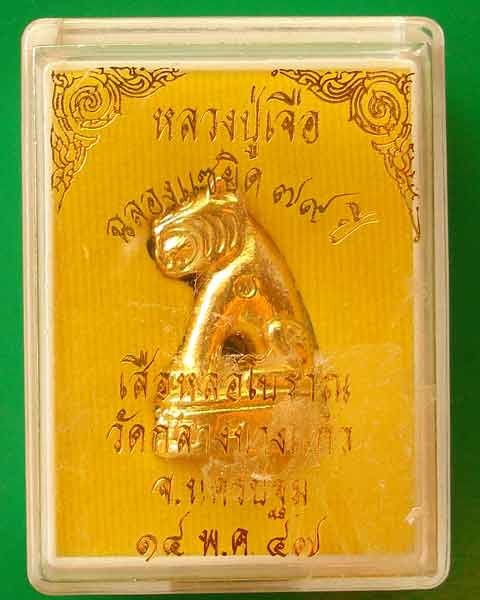 หลวงปู่เจือ
ฉลองแซยิด ๗๙ ปี
เสือหล่อโบราณ
วัดกลางบางแก้ว
จ.นครปฐม
๑๔ พ.ค. ๔๗